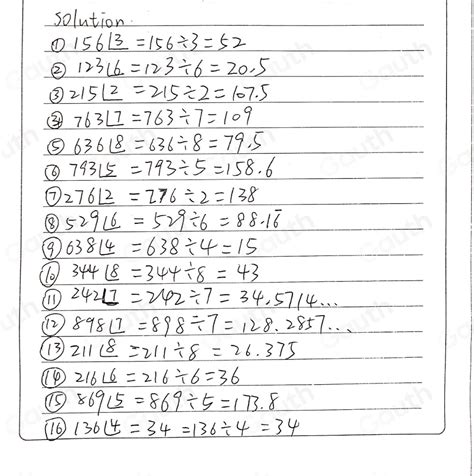 Solution.
① 156⌊3 = 156÷3 = 52
② 123⌊6 = 123÷6 = 20.5
③ 215⌊2 = 215÷2 = 107.5
④ 763⌊7 = 763÷7 = 109
⑤ 636⌊8 = 636÷8 = 79.5
⑥ 793⌊5 = 793÷5 = 158.6
⑦ 276⌊2 = 276÷2 = 138
⑧ 529⌊6 = 529÷6 = 88.16
⑨ 638⌊4 = 638÷4 = 15
⑩ 344⌊8 = 344÷8 = 43
⑪ 242⌊7 = 242÷7 = 34.5714...
⑫ 898⌊7 = 898÷7 = 128.2857...
⑬ 211⌊8 = 211÷8 = 26.375
⑭ 216⌊6 = 216÷6 = 36
⑮ 869⌊5 = 869÷5 = 173.8
⑯ 136⌊4 = 34 = 136÷4 = 34
Gauth